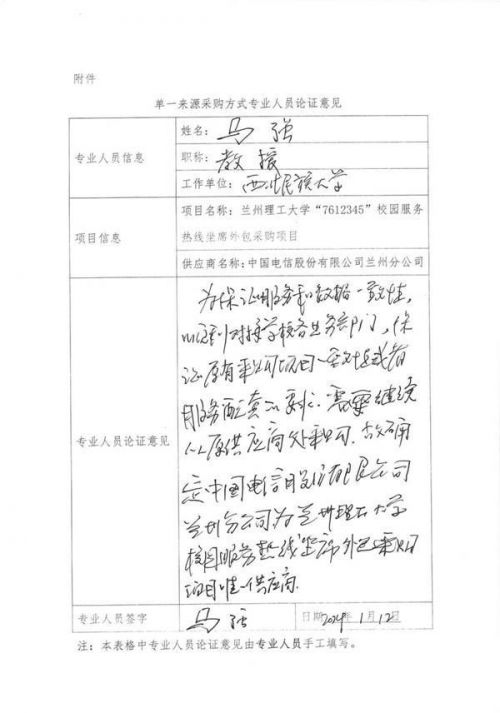 附件
单一来源采购方式专业人员论证意见
专业人员信息
姓名：马强
职称：教授
工作单位：西北民族大学
项目信息
项目名称：兰州理工大学“7612345”校园服务
热线坐席外包采购项目
供应商名称：中国电信股份有限公司兰州分公司
专业人员论证意见
为保证服务和数据一致性，
以利对接学校各业务部门，保
证原有采购项目一致性或者
服务配套的要求，需要继续
从原供应商处采购，故确
定中国电信股份有限公司
兰州分公司为兰州理工大学
校园服务热线坐席外包采购
项目唯一供应商.
专业人员签字
马强
日期 2024年1月12日
注：本表格中专业人员论证意见由专业人员手工填写。